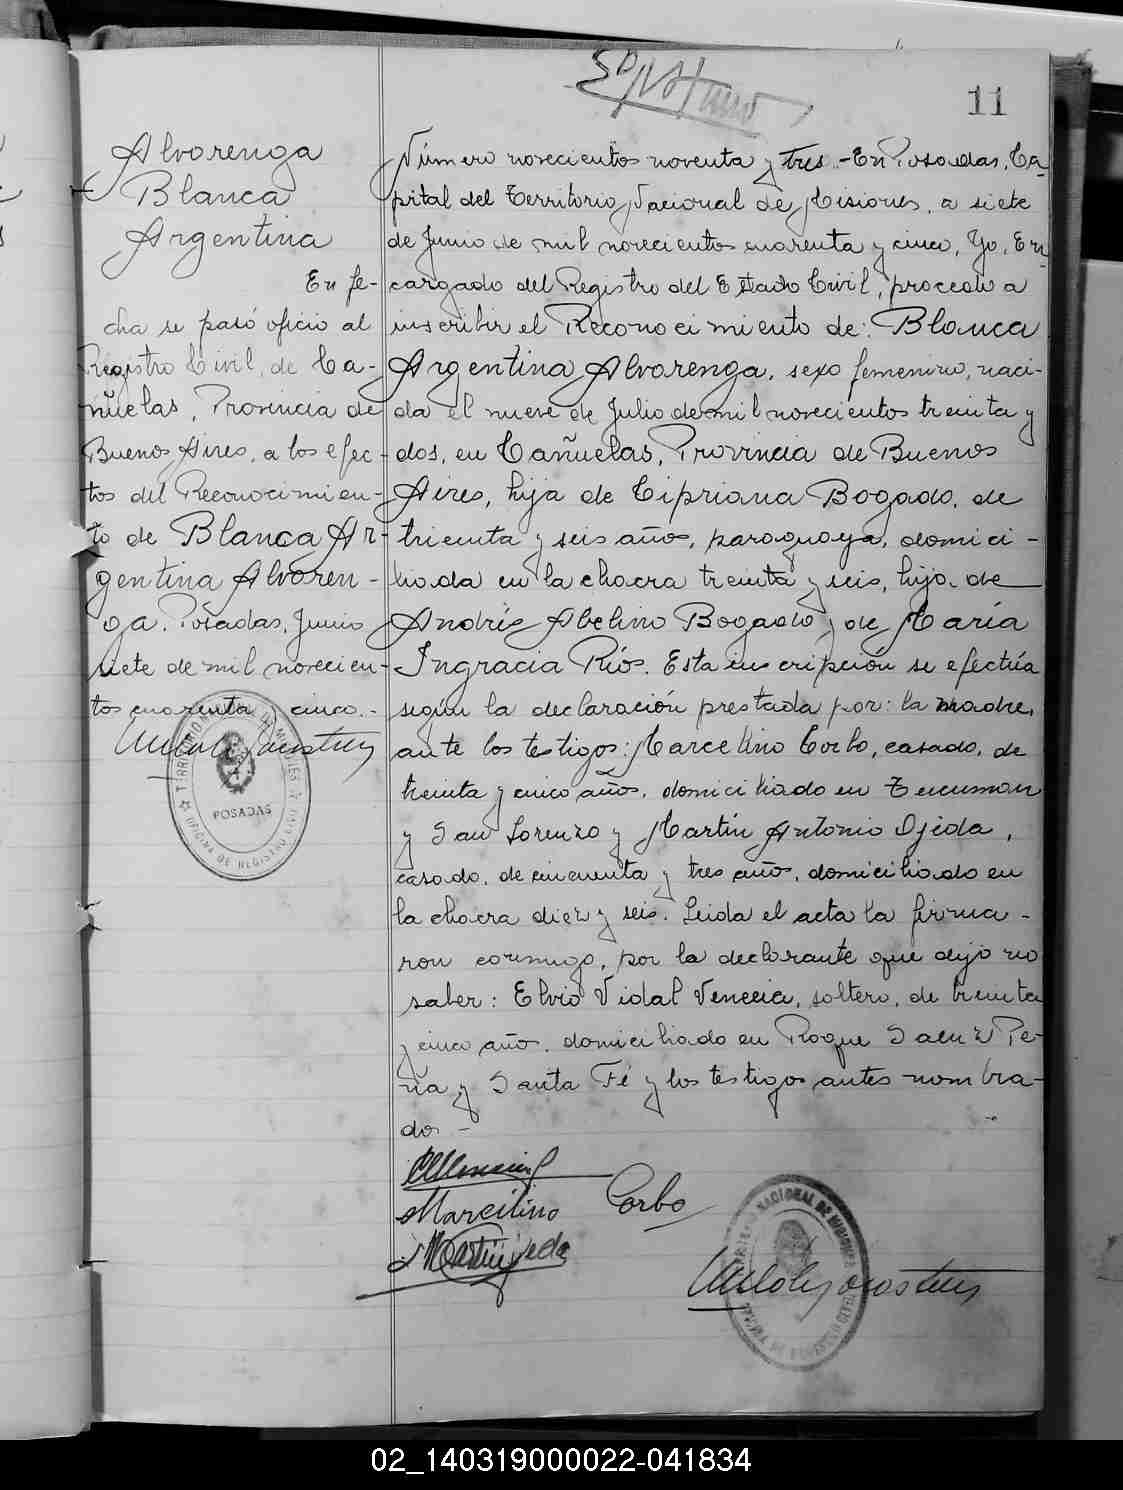 11
Alvorenga
Blanca
Argentina
En fe-
cha se pasó oficio al
Registro Civil, de Ca-
ñuelas, Provincia de
Buenos Aires, a los efec-
tos del Reconocimien-
to de Blanca Ar-
gentina Alvoren-
ga. Posadas, Junio
siete de mil novecien-
tos cuarenta y cinco.-
POSADAS
OFICINA DE REGISTRO CIVIL
Número novecientos noventa y tres.-En Posadas, Ca-
pital del Territorio Nacional de Misiones, a siete
de Junio de mil novecientos cuarenta y cinco, Yo, En-
cargado del Registro del Estado Civil, procedo a
inscribir el Reconocimiento de: Blanca
Argentina Alvorenga, sexo femenino, naci-
da el nueve de Julio de mil novecientos treinta y
dos, en Cañuelas, Provincia de Buenos
Aires, hija de Cipriana Bogado, de
treinta y seis años, paraguaya, domici-
liada en la chacra treinta y seis, hija de
Andrés Abelino Bogado y de María
Ingracia Ríos. Esta inscripción se efectúa
según la declaración prestada por: la madre,
ante los testigos: Marcelino Corbo, casado, de
treinta y cinco años, domiciliado en Tucuman
y San Lorenzo y Martín Antonio Ojeda,
casado, de cincuenta y tres años, domiciliado en
la chacra diez y seis. Leida el acta la firma-
ron conmigo, por la declarante que dijo no
saber: Elvio Vidal Venecia, soltero, de treinta
y cinco años, domiciliado en Roque Saenz Pe-
ña y Santa Fé y los testigos antes nombra-
dos.-
Marcelino Corbo
TERRITORIO NACIONAL DE MISIONES
02_140319000022-041834